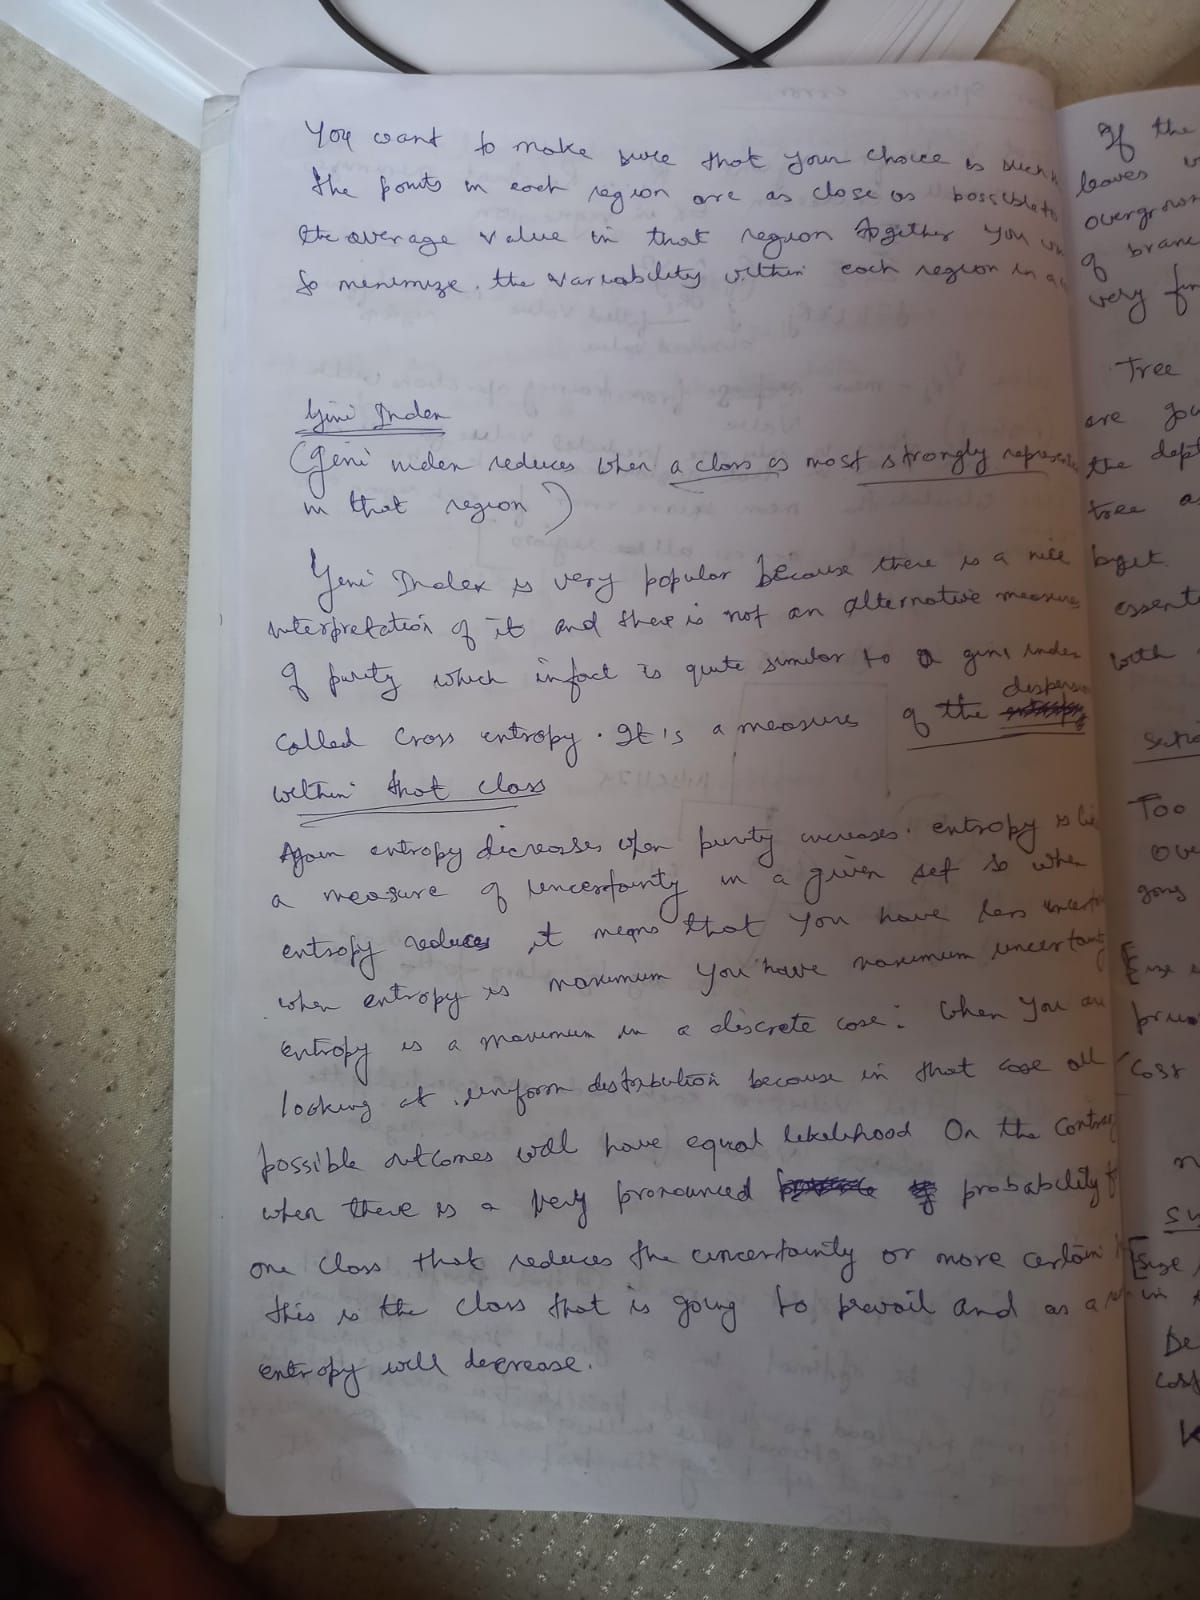 You want to make sure that your choice is such
the points in each region are as close as possible to
the average value in that region together you
so menimize the variability within each region in
Gini Index
(Geni index reduces when a class is most strongly represente
in that region)
Geni Index is very popular because there is a nice
interpretation of it and there is not an alternative measures
of purity which infact is quite similar to a gini index
dispersion
called Cross entropy. It's a measures of the
within that class
Again entropy dicreases when purity increases. entropy is
a measure of uncertainty in a given set so when
entropy reduces it means that you have less uncerta
when entropy is maximum you have maximum uncertaint
entropy is a maximum in a discrete case: When you are
looking at uniform distribution because in that case all
possible outcomes will have equal likelihood On the contrary
when there is a very pronounced probability
one class that reduces the uncertainity or more certain
this is the class that is going to prevail and as a
entropy will decrease.
If the
leaves
overgrown
of branc
very
Tree
are
the dept
tree
essenti
with
Too
ove
going
prun
Cost
[Size
cost